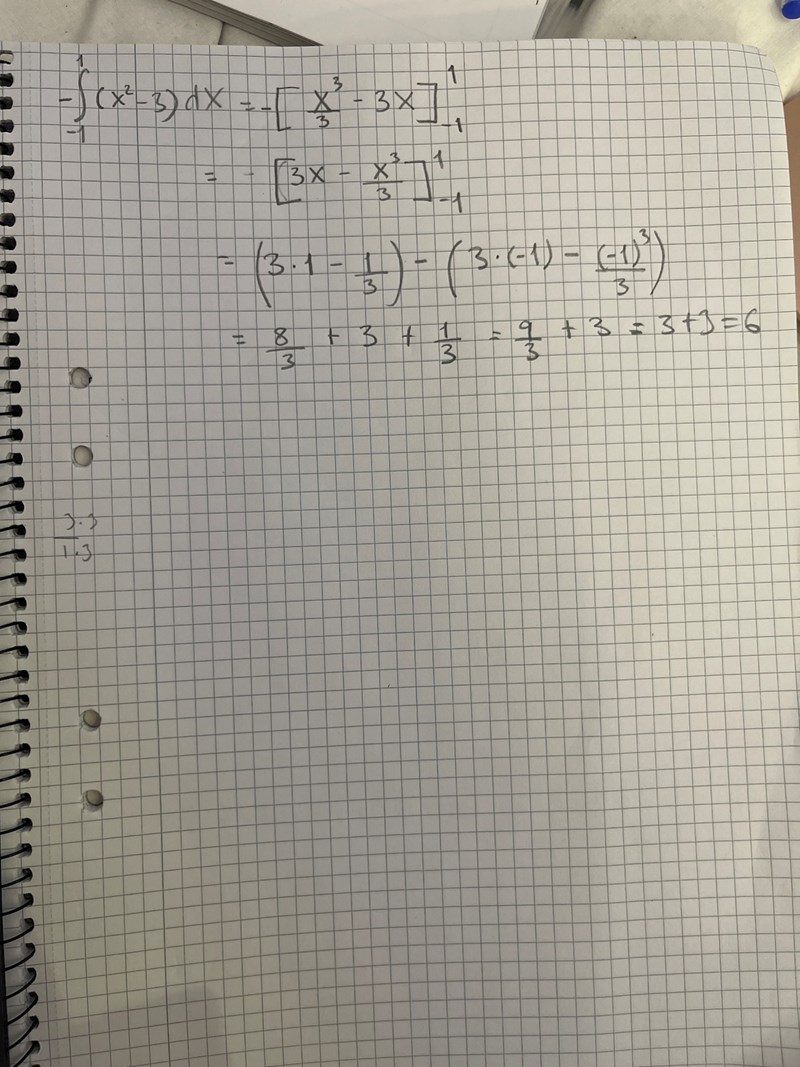 -∫₋₁¹ (x² - 3) dx = -[x³/3 - 3x]₋₁¹
= - [3x - x³/3]₋₁¹
= (3·1 - 1/3) - (3·(-1) - (-1)³/3)
= 8/3 + 3 + 1/3 = 9/3 + 3 = 3+3 = 6
3·3/1·3